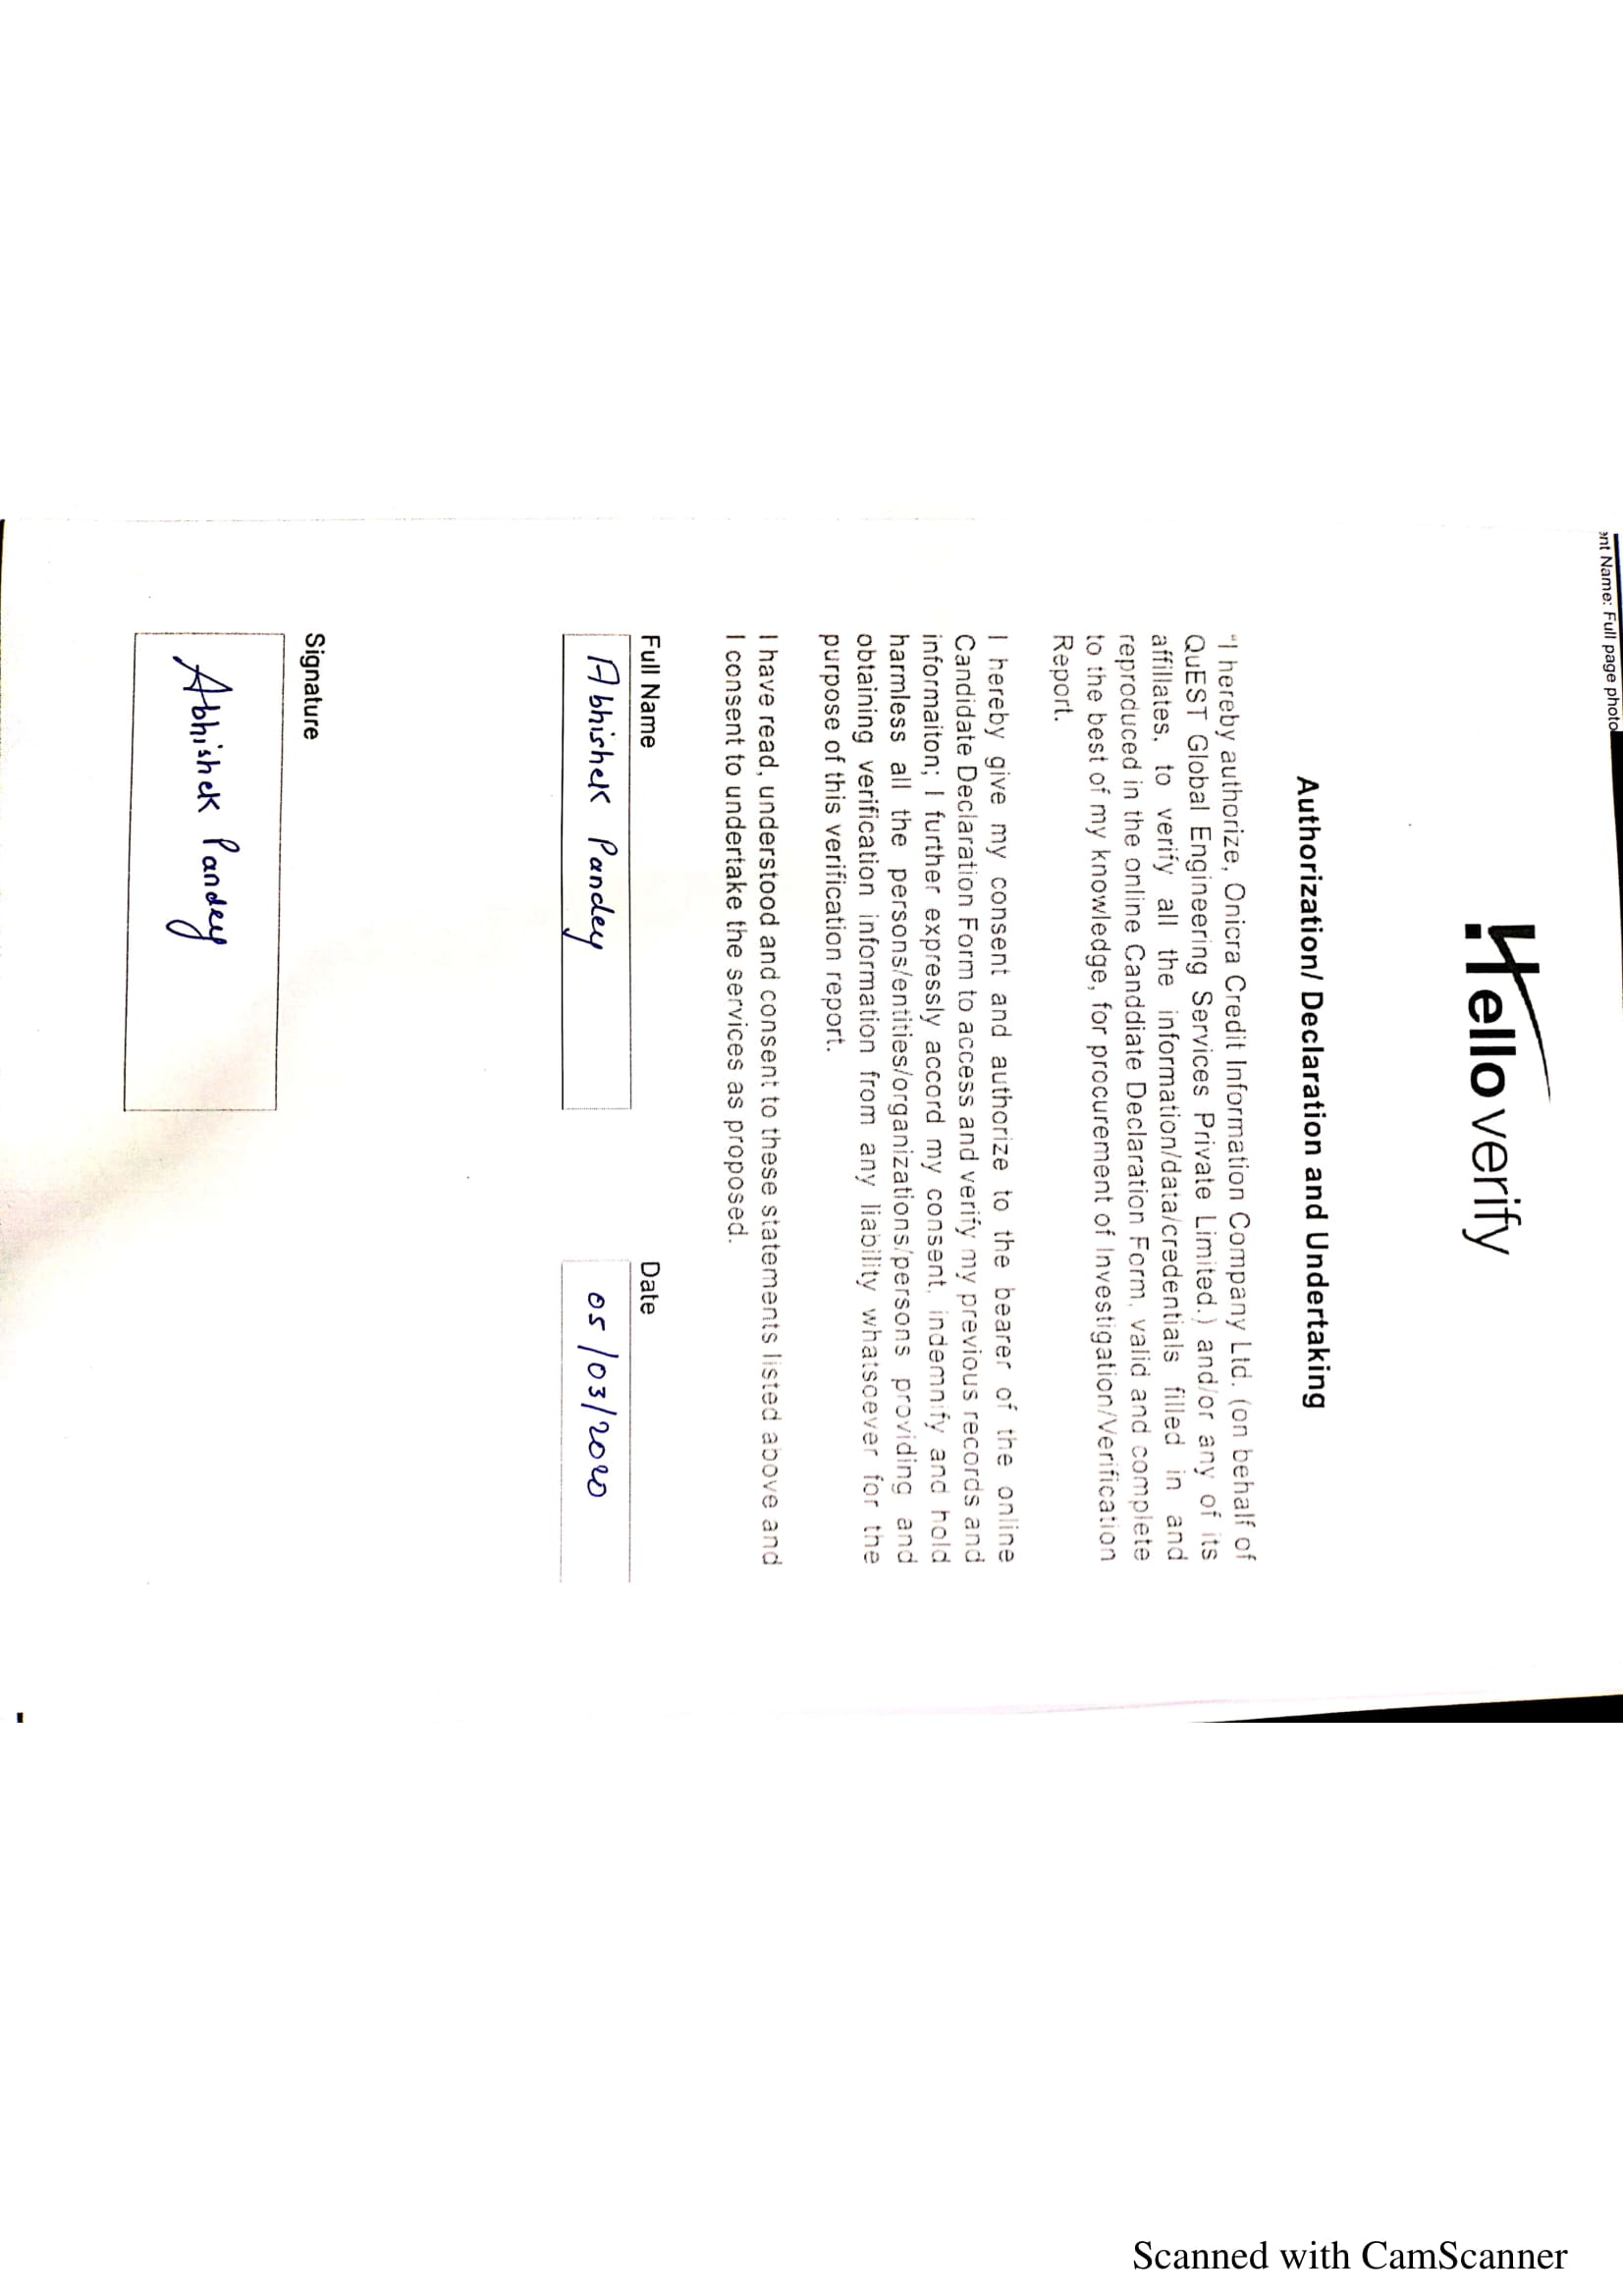 ent Name: Full page photo
Hello verify
Authorization/ Declaration and Undertaking
"I hereby authorize, Onicra Credit Information Company Ltd. (on behalf of
QuEST Global Engineering Services Private Limited.) and/or any of its
affiliates, to verify all the information/data/credentials filled in and
reproduced in the online Canddiate Declaration Form, valid and complete
to the best of my knowledge, for procurement of Investigation/Verification
Report.
I hereby give my consent and authorize to the bearer of the online
Candidate Declaration Form to access and verify my previous records and
informaiton; I further expressly accord my consent, indemnify and hold
harmless all the persons/entities/organizations/persons providing and
obtaining verification information from any liability whatsoever for the
purpose of this verification report.
I have read, understood and consent to these statements listed above and
I consent to undertake the services as proposed.
Full Name Date
Abhishek Pandey 05/03/2020
Signature
Abhishek Pandey
Scanned with CamScanner